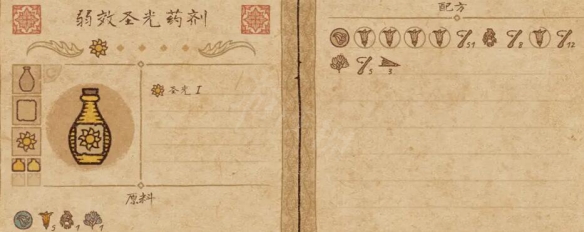 弱效圣光药剂
圣光 I
原料
5 1 1
配方
51 8 12
5 3